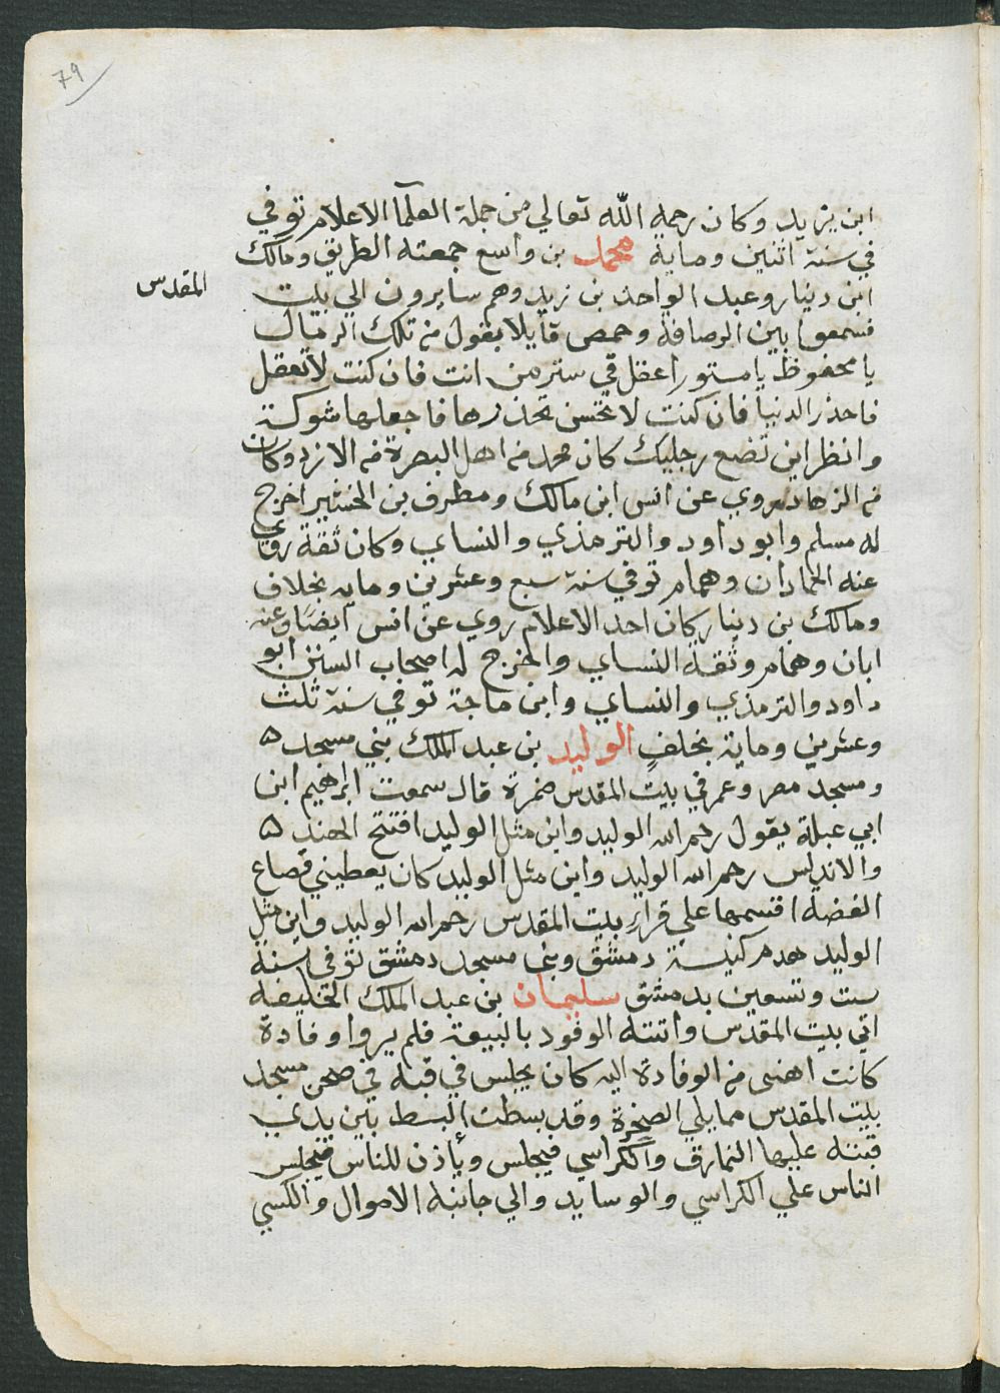 79
ابن يزيد وكان رحمه الله تعالي من جملة العلمآ الاعلام توفي
في سنة اثنين وماية محمد بن واسع جمعته الطريق ومالك
ابن دينار وعبد الواحد بن زيد وهم سايرون الي بيت
المقدس
فسمعوا بين الرصافة وحمص قايلا يقول من تلك الرمال
يا محفوظ يا مستور اعقل في ستر من انت فان كنت لا تعقل
فاحذر الدنيا فان كنت لا تحسن تحذرها فاجعلها شوكة
وانظر اين تضع رجليك كان محمد من اهل البصرة من الازد وكان
من الزهاد يروي عن انس ابن مالك ومطرف بن الخشير اخرج
له مسلم وابو داود والترمذي والنساي وكان ثقة روي
عنه الحمادان وهمام توفي سنة سبع وعشرين ومايه بخلاف
ومالك بن دينار كان احد الاعلام روي عن انس ايضا وعنه
ابان وهمام وثقة النساي والمخرج له اصحاب السنن ابو
داود والترمذي والنساي وابن ماجة توفي سنة ثلث
وعشرين وماية بخلف الوليد بن عبد الملك بني مسجد ه
ومسجد مصر وعمر في بيت المقدس ضمرة قال سمعت ابرهيم ابن
ابي عبلة يقول رحم الله الوليد واين مثل الوليد افتتح الهند ه
والاندلس رحم الله الوليد واين مثل الوليد كان يعطيني قصاع
الفضة اقسمها علي قراء بيت المقدس رحم الله الوليد واين مثل
الوليد هدم كنيسة دمشق وبني مسجد دمشق توفي سنة
ست وتسعين بدمشق سليمان بن عبد الملك الخليفة
اتي بيت المقدس واتته الوفود بالبيعة فلم يروا وفادة
كانت اهنى من الوفادة اليه كان يجلس في قبة في صحن مسجد
بيت المقدس مما يلي الصخرة وقد بسطت البسط بين يدي
قبته عليها النمارق والكراسي فيجلس وياذن للناس فيجلس
الناس علي الكراسي والوسايد والي جانبه الاموال والكسي